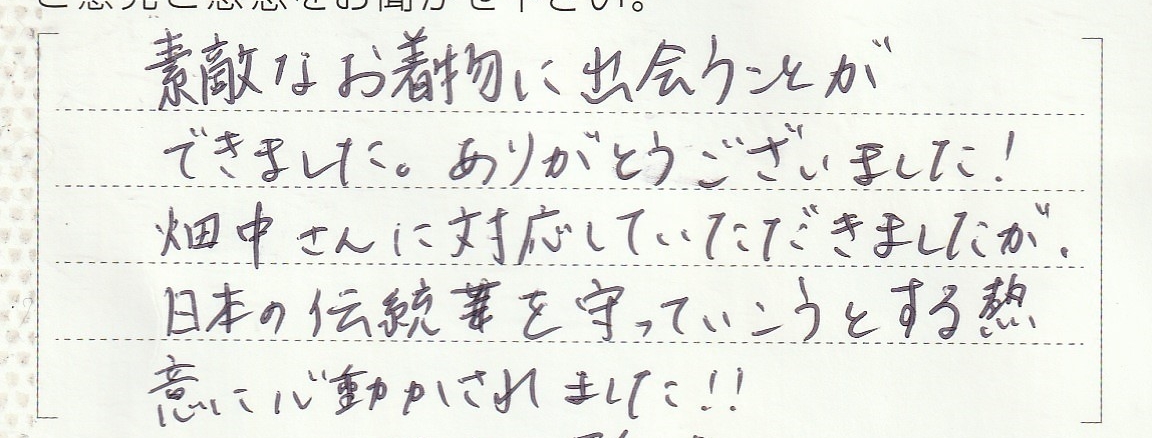 ご意見ご感想をお聞かせ下さい。
素敵なお着物に出会うことが
できました。ありがとうございました!
畑中さんに対応していただきましたが、
日本の伝統業を守っていこうとする熱
意に心動かされました!!